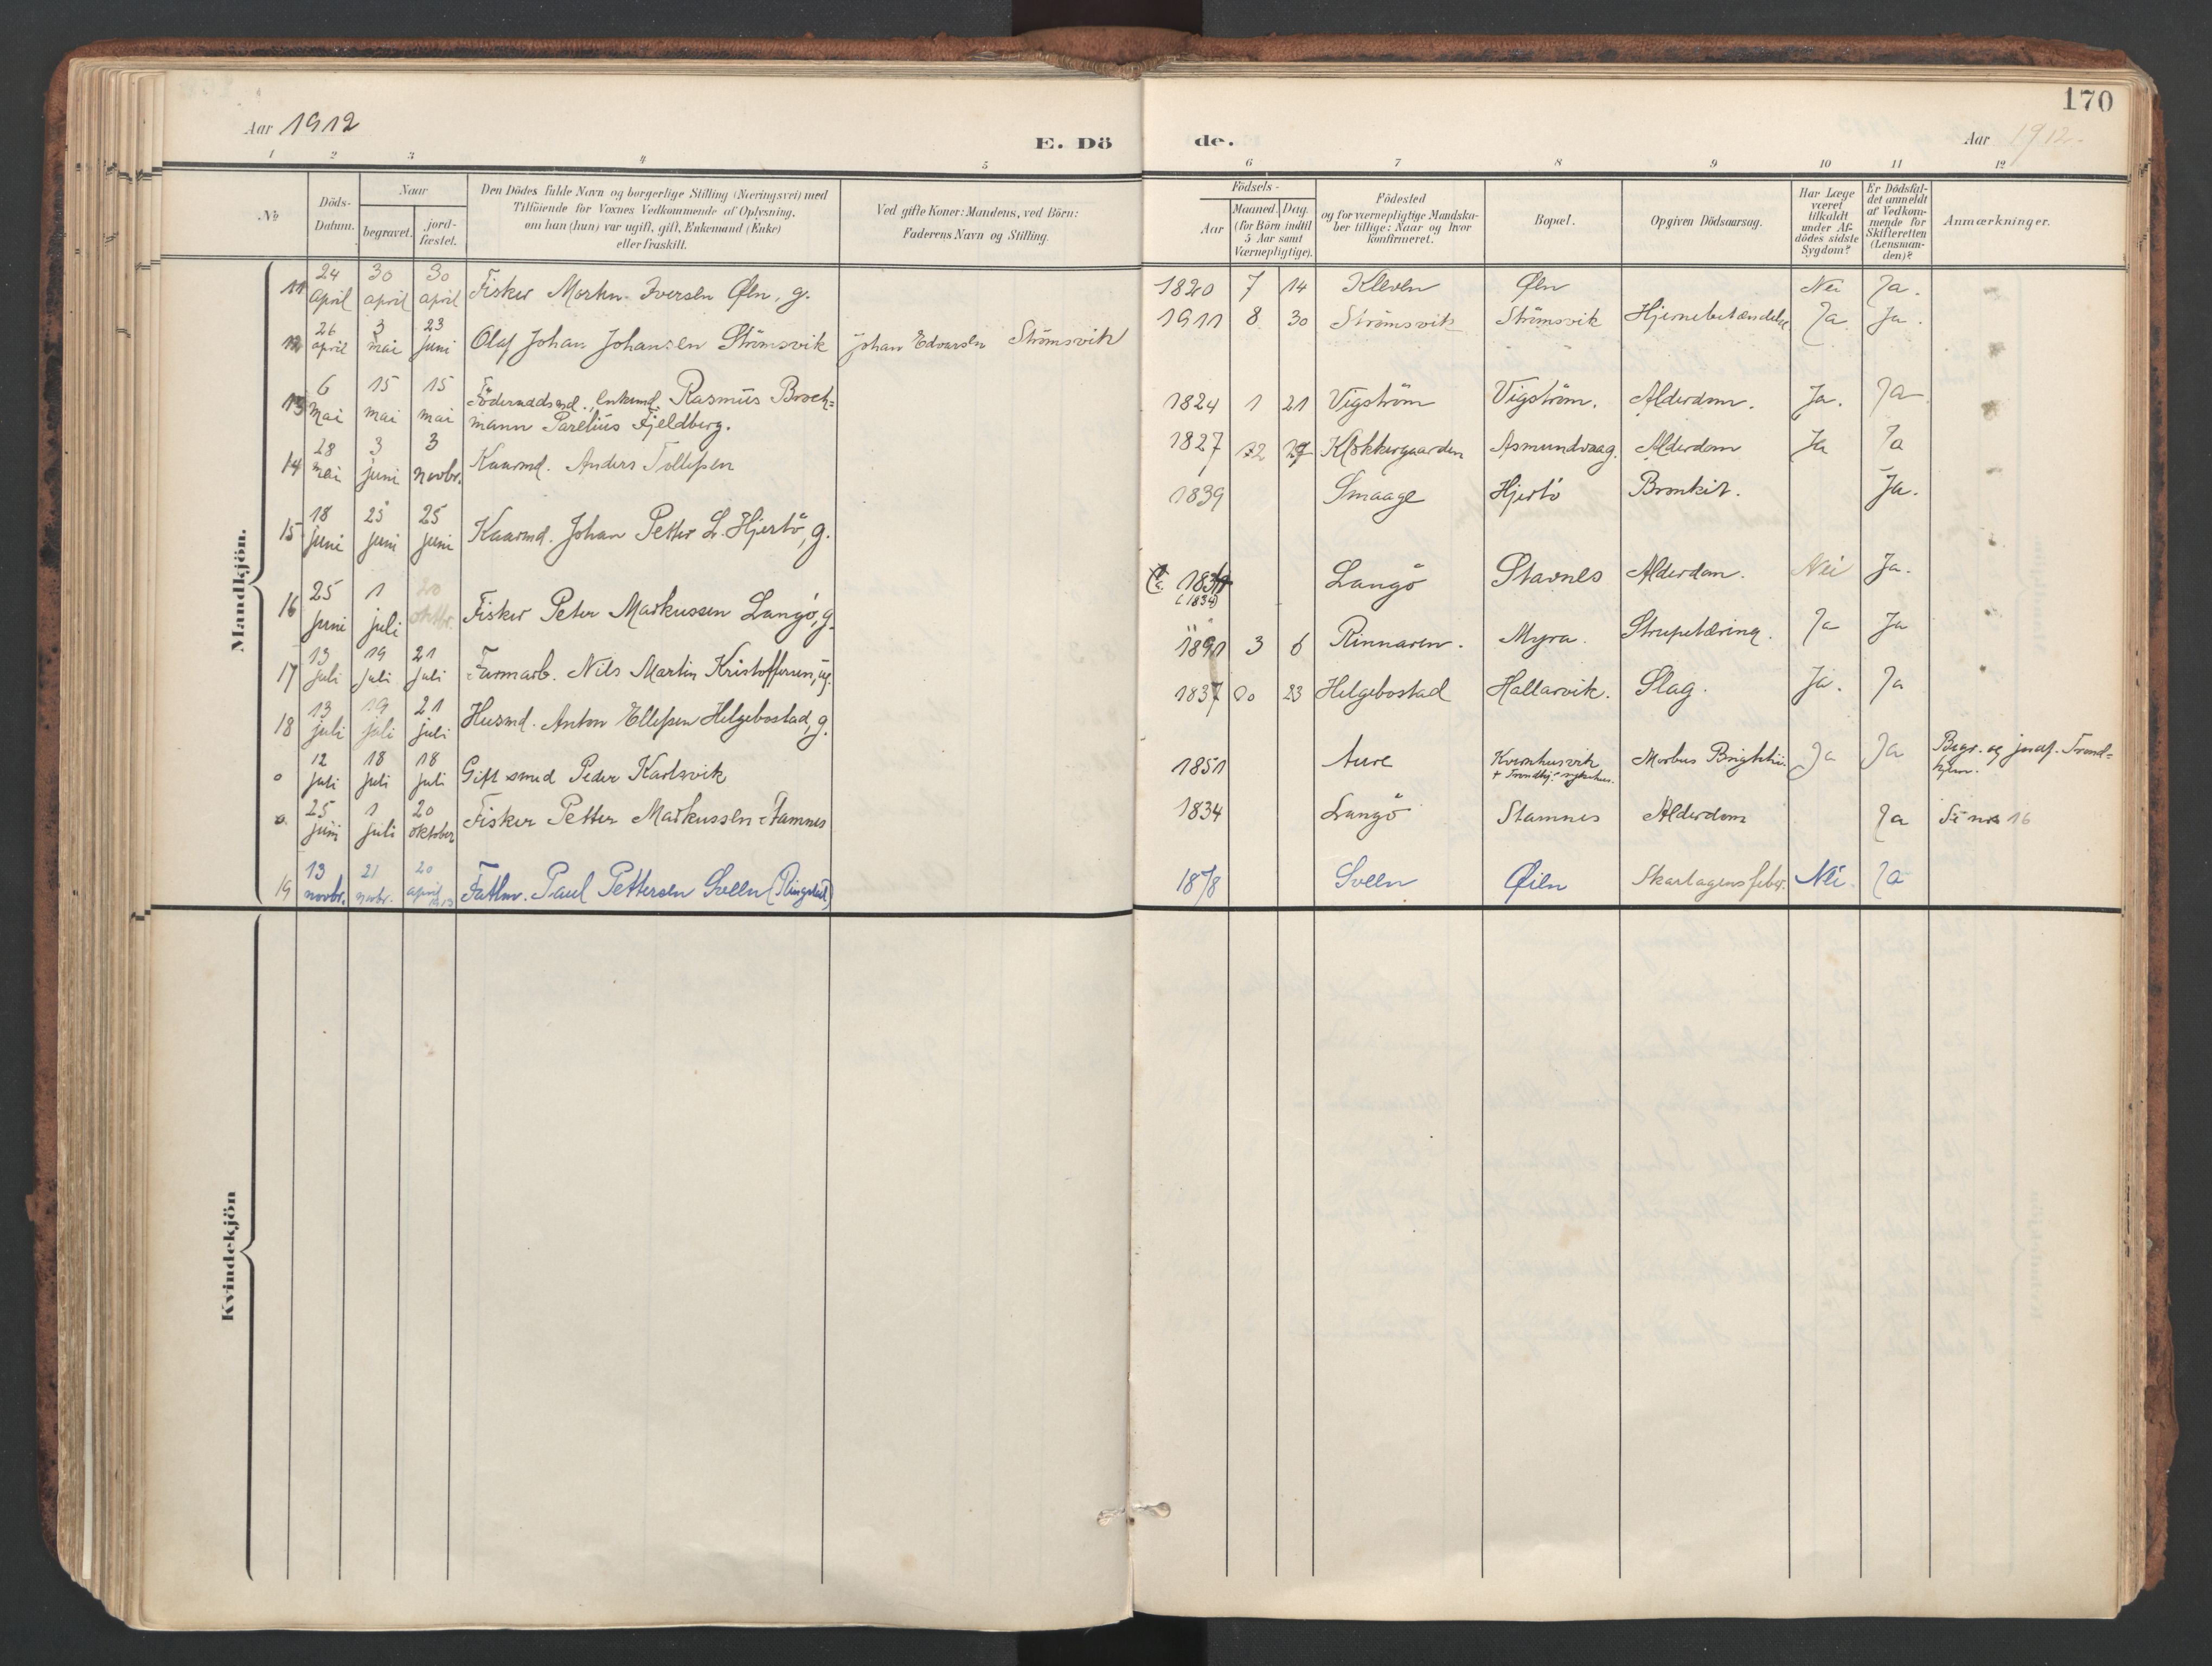 170
Aar 1912
E. Dö de.
Aar 1912
1 2 3 4 5 6 7 8 9 10 11 12
No
Döds-Datum.
Naar
begravet.
jord-fæstet.
Den Dödes fulde Navn og borgerlige Stilling (Næringsvei) med
Tilföiende for Voxnes Vedkommende af Oplysning,
om han (hun) var ugift, gift, Enkemand (Enke)
eller fraskilt.
Ved gifte Koner: Mandens, ved Börn:
Faderens Navn og Stilling.
Födsels-
Aar
Maaned. Dag.
(for Börn indtil
5 Aar samt
Værnepligtige).
Födested
og for værnepligtige Mandska-
ber tillige: Naar og hvor
konfirmeret.
Bopæl.
Opgiven Dödsaarsag.
Har Læge
været
tilkaldt
under Af-
dödes sidste
Sygdom?
Er Dödsfal-
det anmeldt
af Vedkom-
mende for
Skifteretten
(Lensman-
den)?
Anmærkninger.
Mandkjön.
11 24 april 30 april 30 april Fisker Morten Iversen Øen, g. 1820 7 14 Kleven Øen Nei Ja.
12 26 april 3 mai 23 juni Olaf Johan Johansen Strömsvik Johan Edvarsen Strömsvik 1911 8 30 Strömsvik Strömsvik Hjernebetændelse Ja Ja.
13 6 mai 15 mai 15 mai Föderaadsmd. Enkemd. Rasmus Brock=
mann Parelius Fjeldberg. 1824 1 21 Vigström Vigström. Alderdom. Ja. Ja
14 28 mai 3 juni 3 novbr. Kaarmd. Anders Tollefsen 1827 12 29 Klokkergaarden Asmundvaag. Alderdom Ja Ja
15 18 juni 25 juni 25 juni Kaarmd. Johan Petter L. Hjertö, g. 1839 Smaage Hjertö Bronkit. Ja.
16 25 juni 1 juli 20 oktbr. Fisker Peter Markussen Langö, g. (1834) Langö Stavnes Alderdom. Nei Ja.
17 13 juli 19 juli 21 juli Farmarb. Nils Martin Kristoffersen, ug. 1891 3 6 Rinnaren. Myra. Strupetæring. Ja Ja
18 13 juli 19 juli 21 juli Husmd. Anton Ellefsen Helgebostad, g. 1837 23 Helgebostad Hallarvik. Slag. Ja. Ja
o 12 juli 18 juli 18 juli Gift smed Peder Karlsvik 1851 Aure Kvernhusvik
+ Trondhj. sykehus. Morbus Brightii Ja Ja Begr. og jordf. Trond=
hjem.
o. 25 juni 1 juli 20 oktober Fisker Petter Markussen Stamnes 1834 Langö Stamnes Alderdom Ja Se no 16
19 13 novbr. 21 novbr. 20 april 1913 Fattlm. Paul Pettersen Sveen (Ringstad) 1878 Sveen Øien Skarlagensfeber. Nei. Ja
Kvindekjön